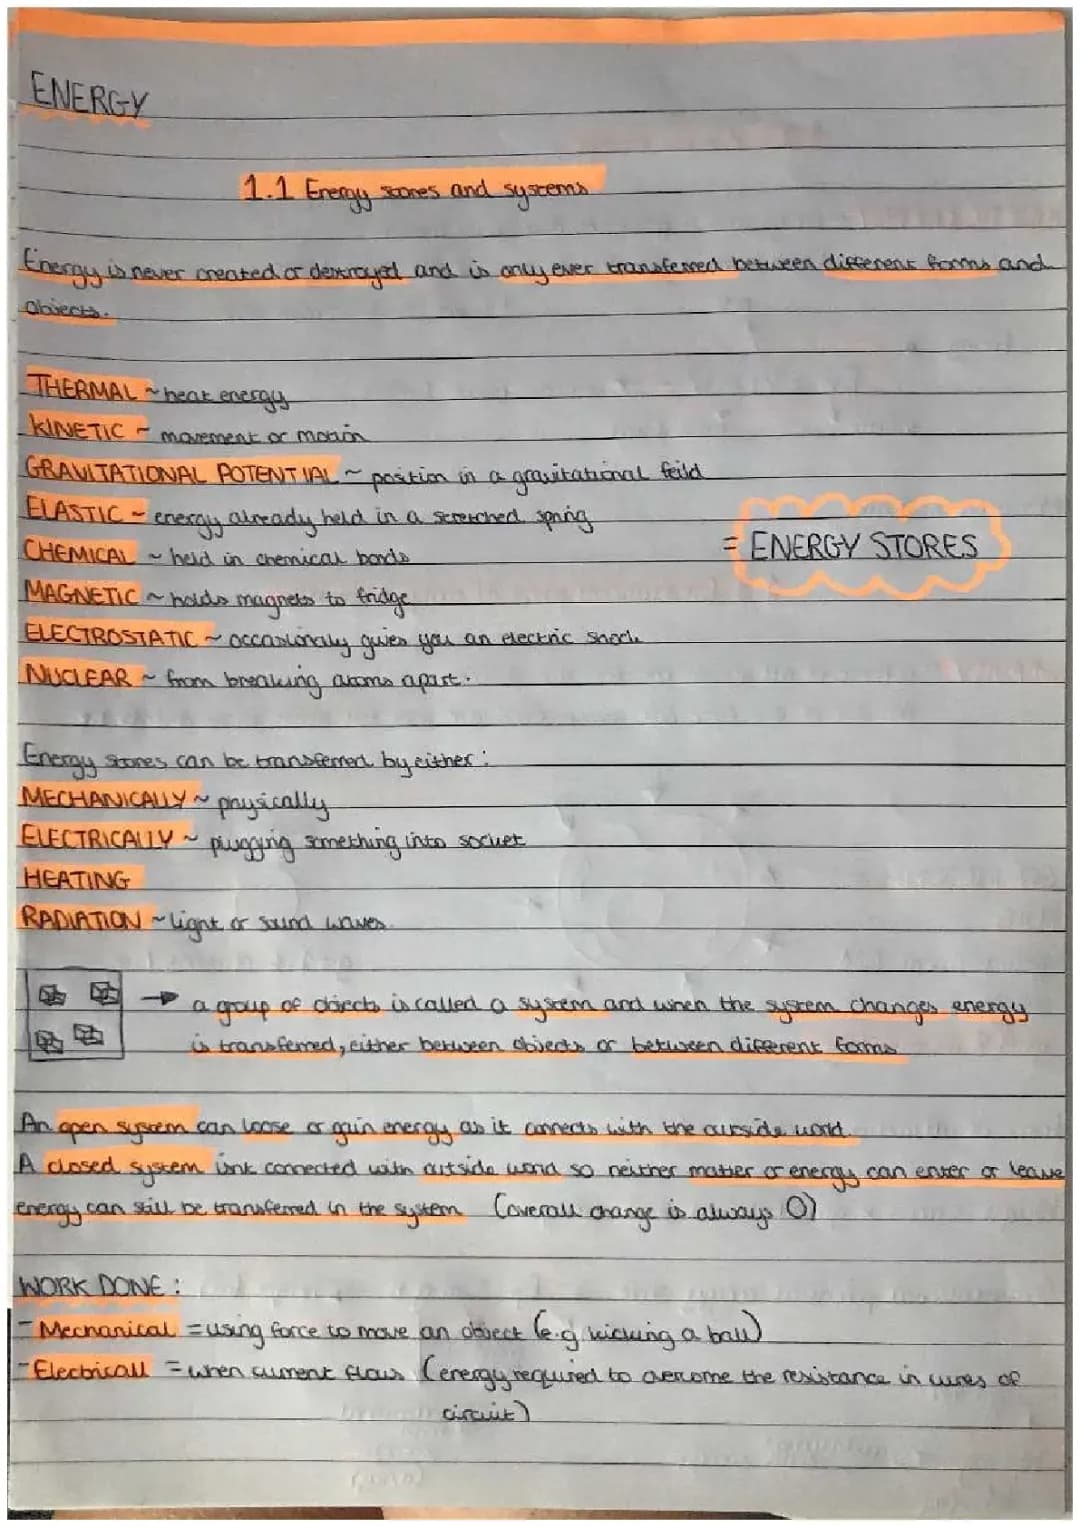 ENERGY
1.1 Energy stores and systems
Energy is never created or destroyed and is only ever transferred between different forms and
objects.
THERMAL ~ heat energy
KINETIC ~ movement or motion
GRAVITATIONAL POTENTIAL ~ position in a gravitational feild
ELASTIC ~ energy already held in a stretched spring
= ENERGY STORES
CHEMICAL ~ held in chemical bonds
MAGNETIC ~ holds magnets to fridge
ELECTROSTATIC ~ occasionaly gives you an electric shock
NUCLEAR ~ from breaking atoms apart.
Energy stores can be transferred by either:
MECHANICALLY ~ physically
ELECTRICALLY ~ plugging something into socket
HEATING
RADIATION ~ light or sound waves
→ a group of objects is called a system and when the system changes, energy
is transferred, either between objects or between different forms
An open system can loose or gain energy as it connects with the outside world.
A closed system isnt connected with outside world so neither matter or energy can enter or leave
energy can still be transferred in the system (overall change is always 0)
WORK DONE:
- Mechanical = using force to move an object (e.g kicking a ball)
- Electricall = when current flows (energy required to overcome the resistance in wires of
circuit)